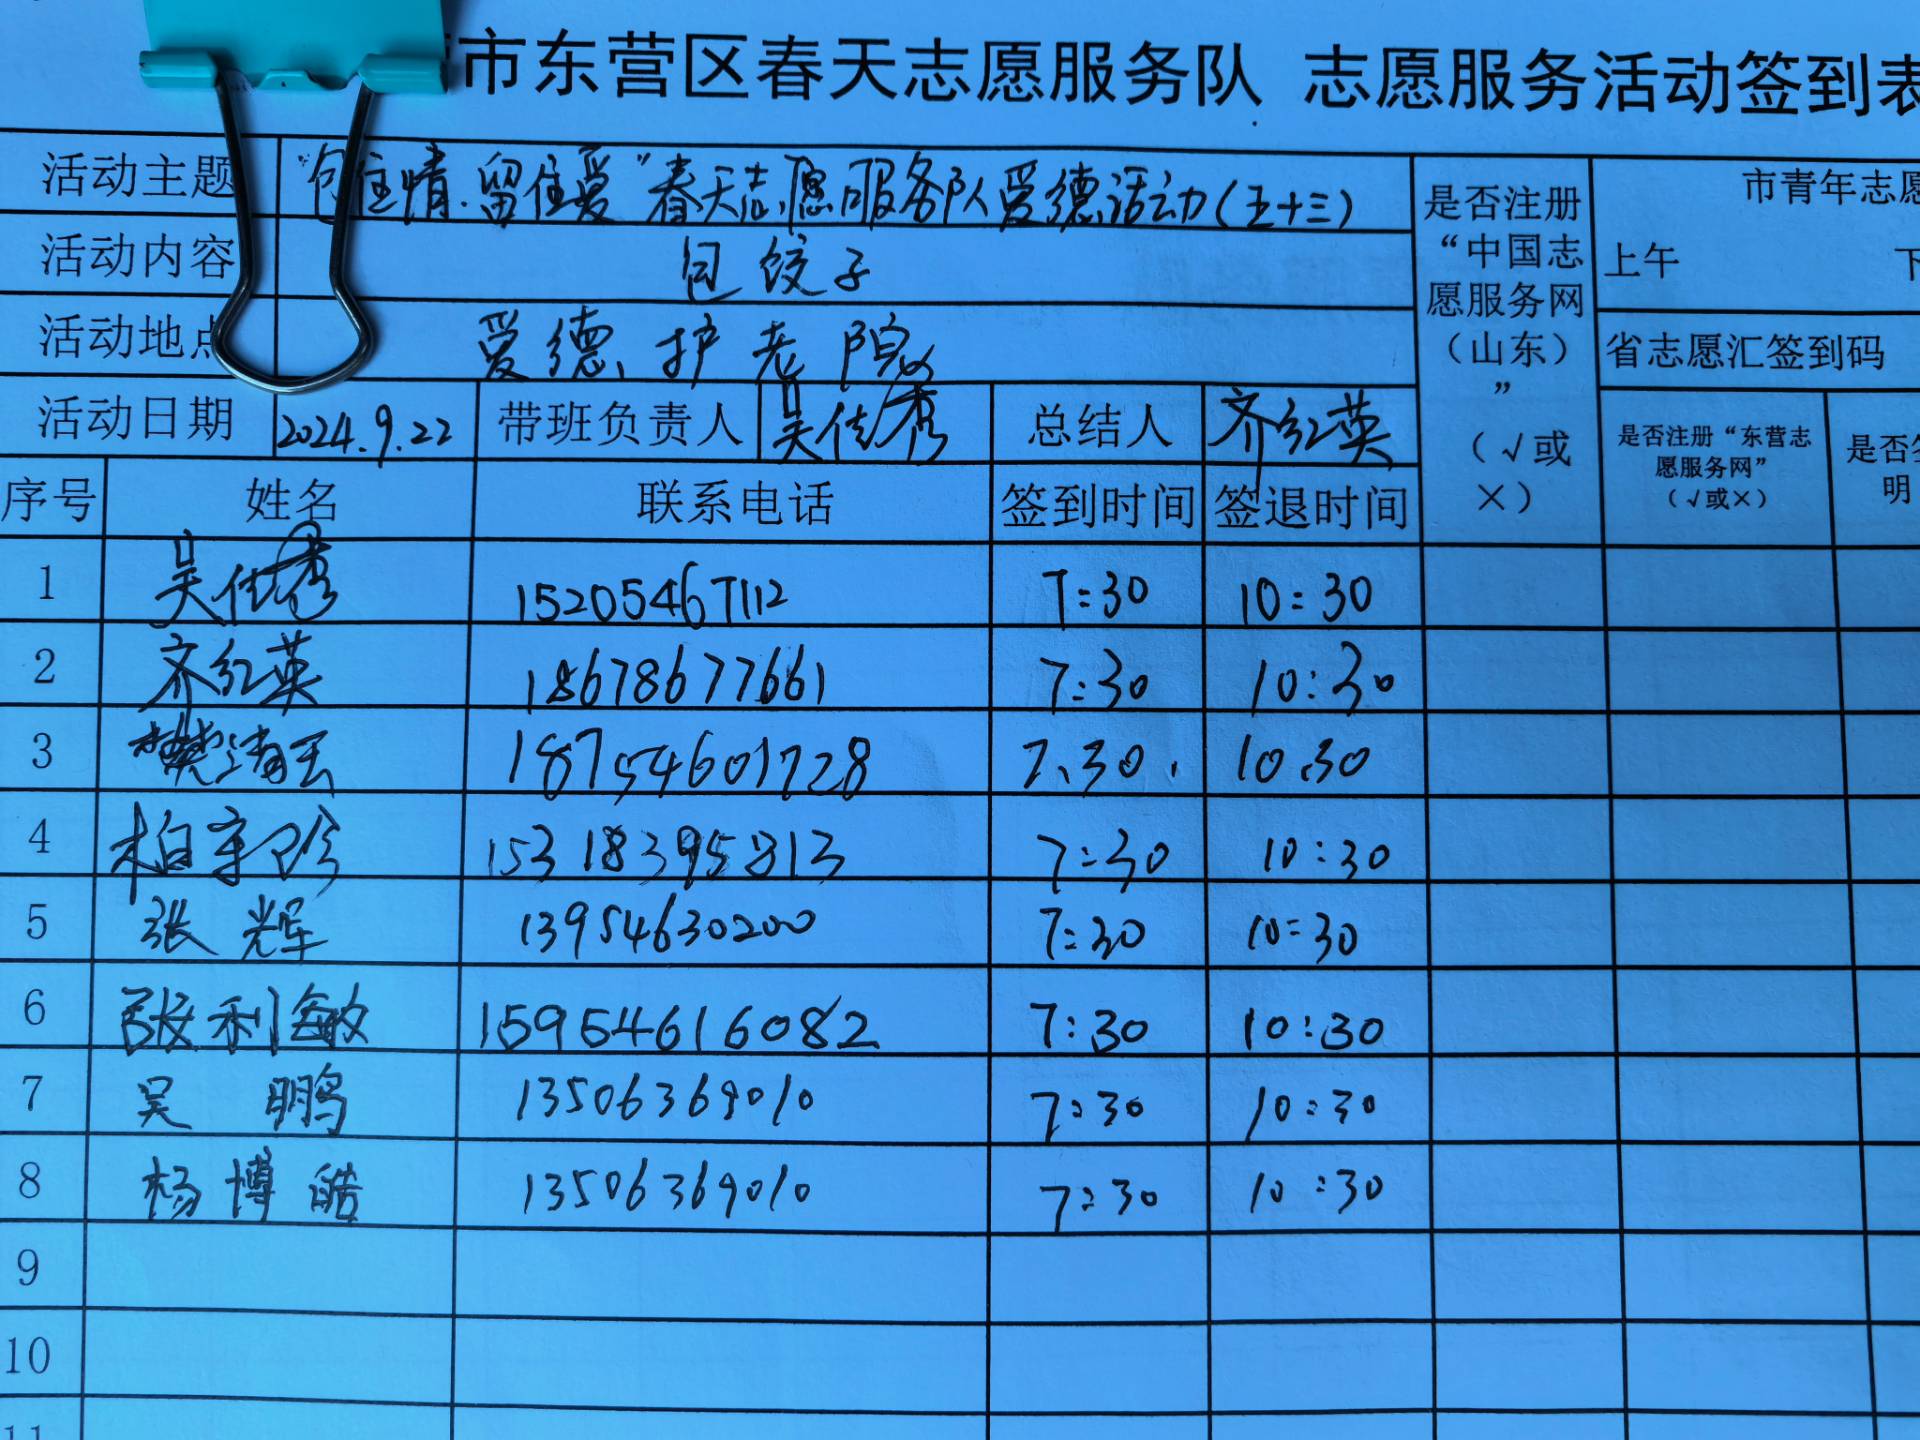 市东营区春天志愿服务队 志愿服务活动签到表
活动主题 “包住情.留住爱”春天志愿服务队爱德活动(五十三)
活动内容 包饺子
活动地点 爱德、护老院
活动日期 2024.9.22 带班负责人 吴佳秀 总结人 齐红英
是否注册“中国志愿服务网（山东）”（√或×）
市青年志愿
上午 下
省志愿汇签到码
是否注册“东营志愿服务网”（√或×）
是否 明
序号 姓名 联系电话 签到时间 签退时间
1 吴佳秀 15205467112 7:30 10:30
2 齐红英 18678677661 7:30 10:30
3 樊清云 18754601728 7.30. 10.30
4 柏字珍 15318395813 7:30 10:30
5 张辉 13954630200 7:30 10:30
6 张利敏 15954616082 7:30 10:30
7 吴鹏 13506369010 7:30 10:30
8 杨博皓 13506369010 7:30 10:30
9
10
11